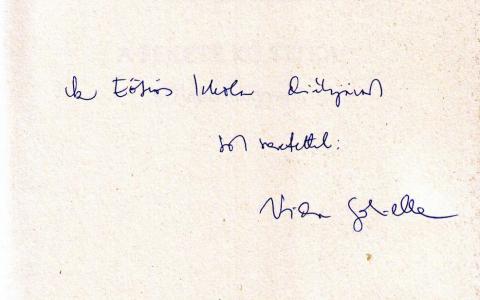 Az Eötvös Iskola diákjainak
sok szeretettel:
Vidra Gabriella